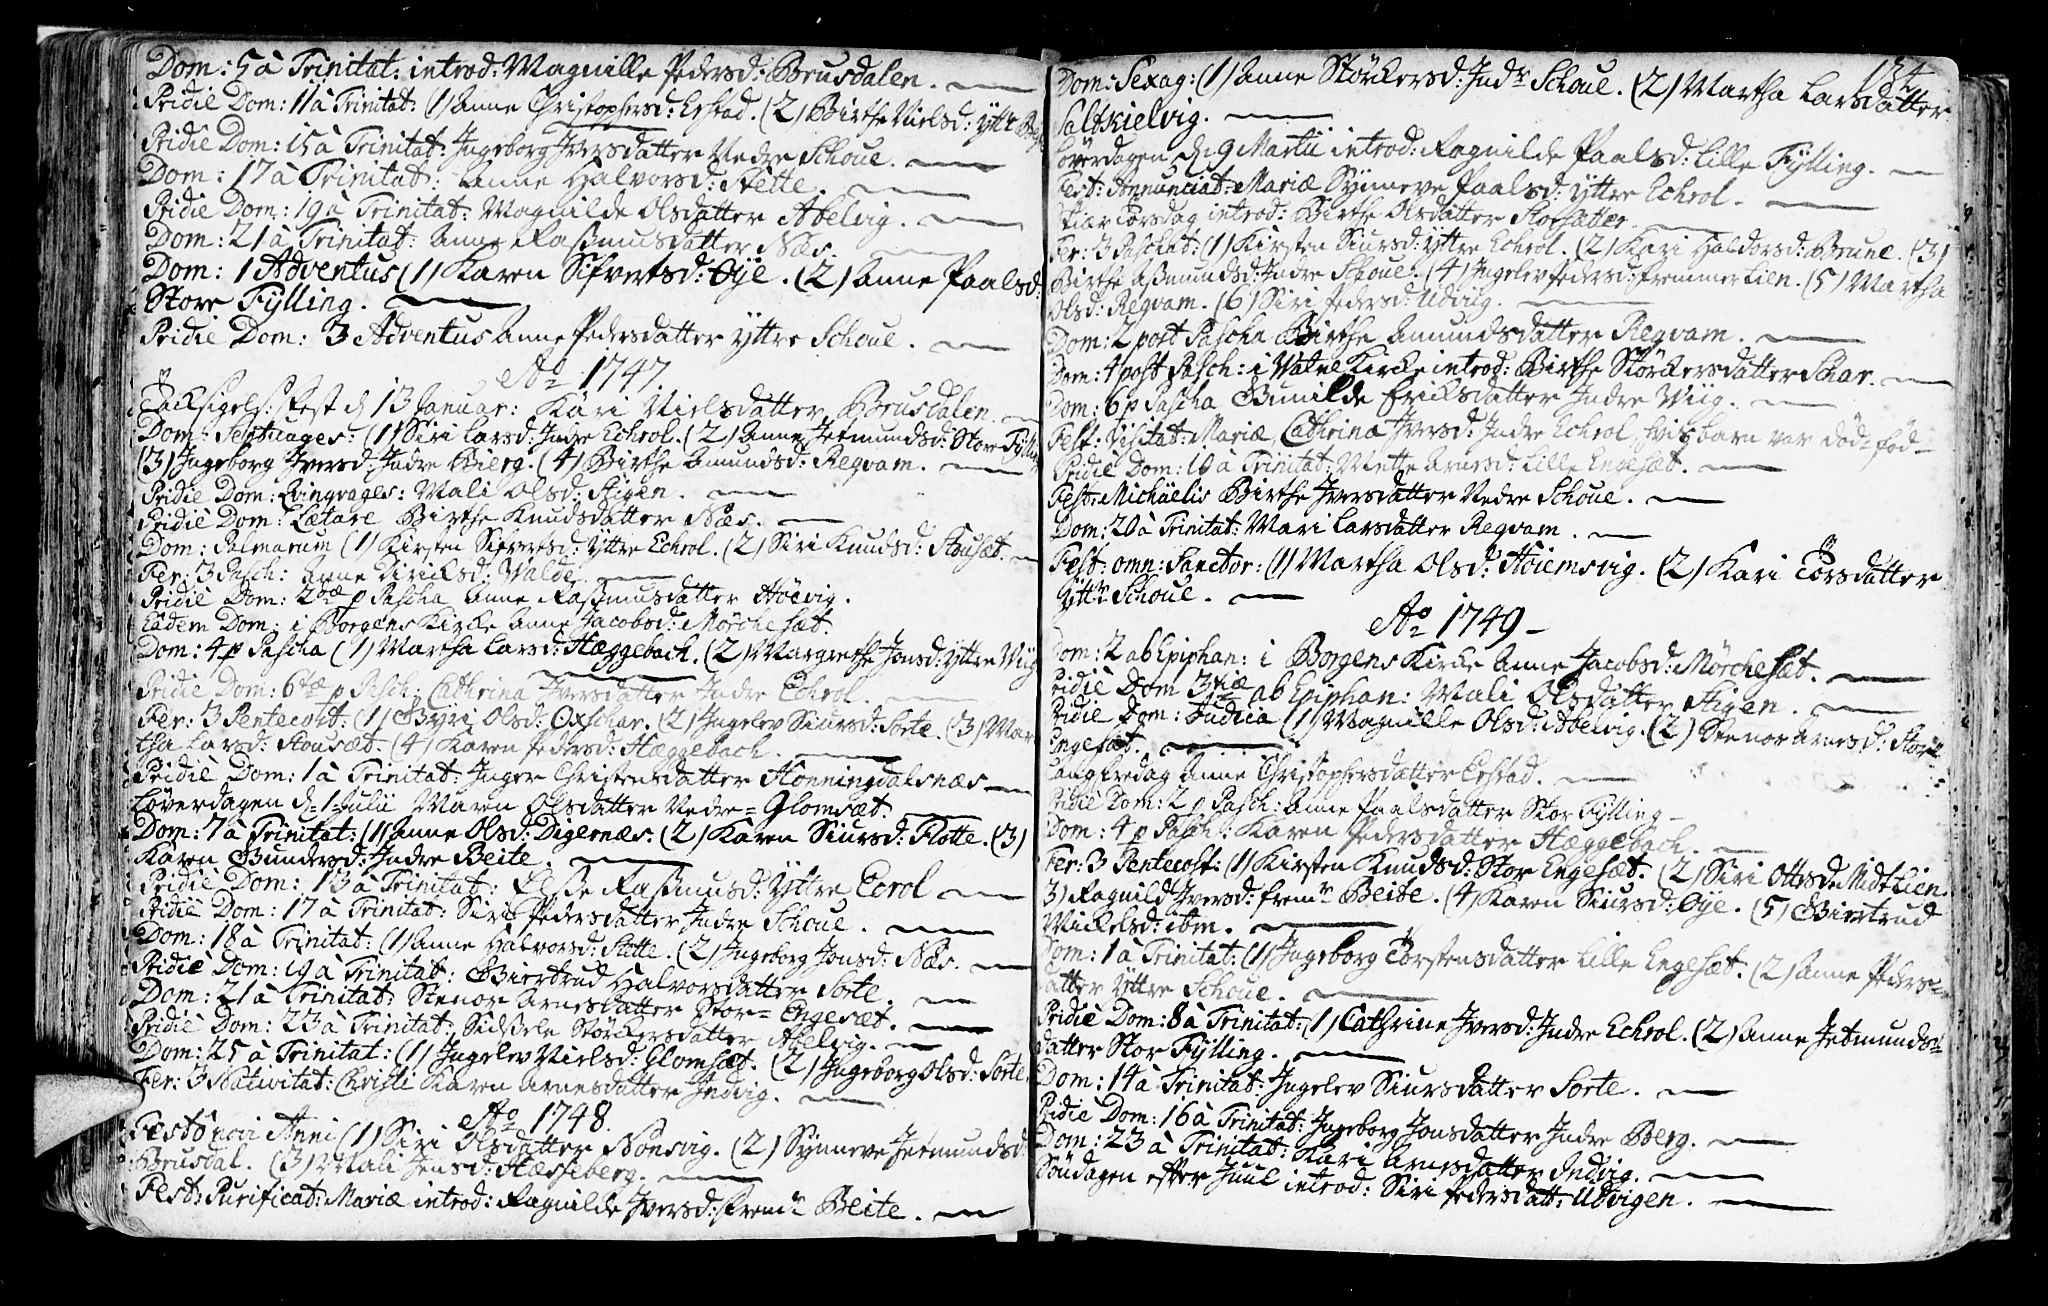 Dom: 5 à Trinitat: introd: Magnille Pedersd: Brusdalen.
Pridie Dom: 11 à Trinitat: (1) Anne Christophersd: Erstad. (2) Birthe Nielsd: ytt
Pridie Dom: 15 à Trinitat: Ingeborg Iversdatter Nedre Schoue.
Dom: 17 à Trinitat: Anne Halvorsd: Slette.
Pridie Dom: 19 à Trinitat: Magnilde Olsdatter Abelvig.
Dom: 21 à Trinitat: Anne Rasmusdatter Næs.
Dom: 1 Adventus (1) Karen Sifvertsd: Øye. (2) Anne Paalsd:
Store Fylling.
Pridie Dom: 3 Adventus Anne Pedersdatter yttre Schoue.
Ao 1747.
Tacksigels: Fest d 13 Januar: Kari Nielsdatter Brusdalen.
Dom: Septuages: (1) Siri Larsd: Indre Echrol. (2) Anne Jetmundsd: Stor Fylli
(3) Ingeborg Iversd: Indre Bierg. (4) Birthe Amundsd: Reqvam.
Pridie Dom: Qvinqvages: Mali Olsd: Stigen.
Pridie Dom: Lætare Birthe Knudsdatter Næs.
Dom: Palmarum (1) Kirsten Sifvertsd: Yttre Echrol. (2) Siri Knudsd: Stousæt.
Fer: 3 Pasch: Anne Diricksd: Walde.
Pridie Dom: 2dæ p Pascha Anne Rasmusdatter Høevig.
Eadem Dom: i Borgens Kircke Anne Jacobsd: Mørchesæt.
Dom: 4 p Pascha (1) Martha Larsd: Hæggebach. (2) Margrethe Jonsd: Yttre Wiig
Pridie Dom: 6tæ p Pasch: Cathrina Iversdatter Indre Echrol.
Fer: 3 Pentecost: (1) Gyri Olsd: Oxschar. (2) Ingelev Siursd: Sorte. (3) Mar
tha Larsd: Stousæt. (4) Karen Pedersd: Hæggebach.
Pridie Dom: 1 à Trinitat: Inger Christensdatter Honningdalsnæs
Løverdagen d: 1 Julii Maren Olsdatter Nedre= Glomsæt.
Dom: 7 à Trinitat: (1) Anne Olsd: Digernæs. (2) Karen Siursd: Flotte. (3)
Karen Gundersd: Indre Beite.
Pridie Dom: 13 à Trinitat: Else Rasmusd: Yttre Ecrol
Pridie Dom: 17 à Trinitat: Siri Pedersdatter Indre Schoue.
Dom: 18 à Trinitat: (1) Anne Halvorsd: Slette. (2) Ingeborg Jonsd: Næs.
Pridie Dom: 19 à Trinitat: Giertrud Halvorsdatter Sorte.
Dom: 21 à Trinitat: Stenor Arnesdatter Stor= Engesæt.
Pridie Dom: 23 à Trinitat: Sidsele Størkersdatter Abelvig.
Dom: 25 à Trinitat: (1) Ingelev Nielsd: Glomsæt. (2) Ingeborg Olsd: Sorte.
Fer: 3 Nativitat: Christi Karen Arnesdatter Indvig.
Ao 1748.
Festo novi Anni (1) Siri Olsdatter Nonsvig. (2) Synneve Jetmundsd:
Brusdal. (3) Mali Jensd: Hæsseberg.
Fest: Purificat: Mariæ introd: Ragnilde Iversd: Fremr Beite.
134
Dom: Sexag: (1) Anne Størckersd: Indr Schoue. (2) Martha Larsdatter
Saltkielvig.
Løverdagen d: 9 Martii introd: Ragnilde Paalsd: Lille Fylling.
Fest: Annunciat: Mariæ Synneve Paalsd: Yttre Echrol.
Skiærtorsdag introd: Birthe Olsdatter Storsætter.
Fer: 3 Paschat: (1) Kirsten Siursd: yttre Echrol. (2) Kari Haldorsd: Brune. (3)
Birthe Asmundsd: Indre Schoue. (4) Ingelev Pedersd: fremmer Lien. (5) Martha
Olsd: Reqvam. (6) Siri Pedersd: Udviig.
Dom: 2 post Pascha Birthe Amundsdatter Reqvam.
Dom: 4 post Pasch: i Vatne Kircke introd: Birthe Størckersdatter Schar.
Dom: 6 p Pascha Gunilde Ericksdatter Indre Wiig.
Fest: Visitat: Mariæ, Cathrina Iversd: Indre Echrol, hvis barn var død= fød=
Pridie Dom: 10 à Trinitat: Mette Arnesd: Lille Engesæt.
Fest: Michaelis Birthe Iversdatter Nedre Schoue.
Dom: 20 à Trinitat: Mari Larsdatter Reqvam.
Fest: omn: Sanctor: (1) Martha Olsd: Høiemsvig. (2) Kari Torsdatter
Yttr Schoue.
Ao 1749
Dom: 2 ab Epiphan: i Borgens Kircke Anne Jacobsd: Mørchesæt.
Pridie Dom 3tiæ ab Epiphan: Mali Olsdatter Stigen.
Pridie Dom: Judica (1) Magnille Olsd: Abelvig. (2) Stenor Arnesd: Stor
Engesæt.
Langfredag Anne Christophersdatter Erstad.
Pridie Dom: 2 p Pasch: Anne Paalsdatter Stor Fylling
Dom: 4 p Pasch: Karen Pedersdatter Hæggebach.
Fer: 3 Pentecost: (1) Kirsten Knudsd: Stor Engesæt. (2) Siri Ottesd: Midtlien.
3) Ragnild Iversd: fremr Beite. (4) Karen Siursd: Øye. (5) Giertrud
Mickelsd: ibm.
Dom: 1 à Trinitat: (1) Ingeborg Torstensdatter Lille Engesæt. (2) Anne Peders=
datter yttre Schoue.
Pridie Dom: 8 à Trinitat: (1) Cathrine Iversd: Indre Echrol. (2) Anne Jetmunds=
datter Stor Fylling.
Dom: 14 à Trinitat: Ingelev Siursdatter Sorte.
Pridie Dom: 16 à Trinitat: Ingeborg Jonsdatter Indre Berg.
Dom: 23 à Trinitat: Kari Arnesdatter Indvig.
Søndagen efter Juul introd: Siri Pedersdatt: Udvigen.